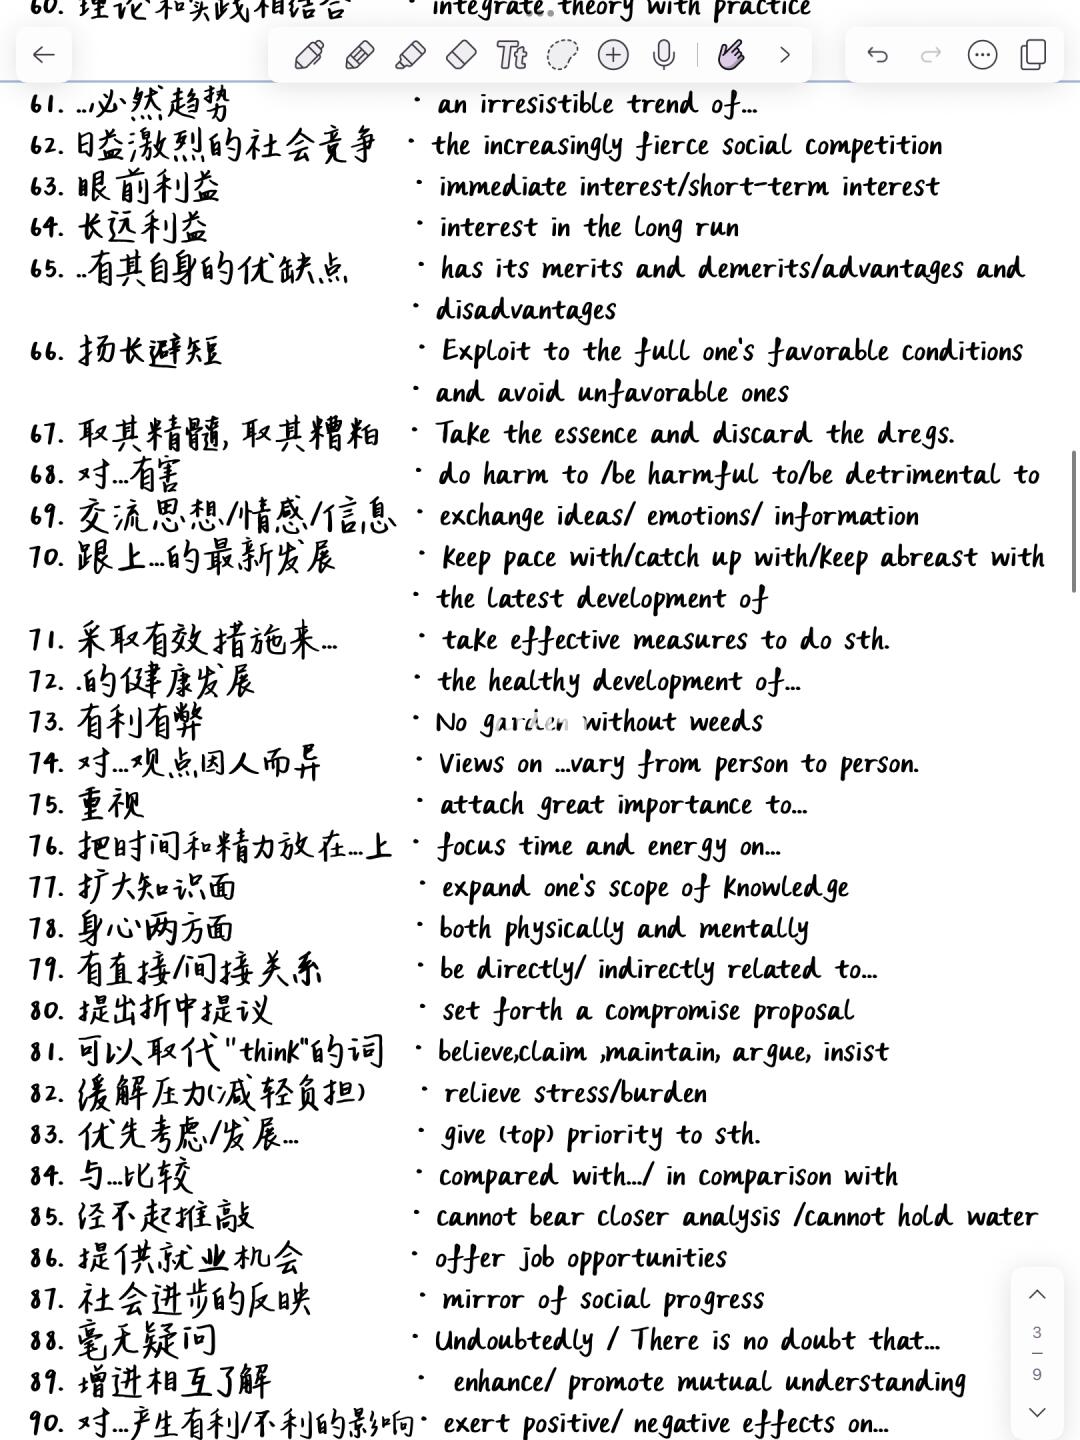 60. 理论和实践相结合 · integrate theory with practice
Tt
61. ...必然趋势 · an irresistible trend of...
62. 日益激烈的社会竞争 · the increasingly fierce social competition
63. 眼前利益 · immediate interest/short-term interest
64. 长远利益 · interest in the long run
65. ..有其自身的优缺点 · has its merits and demerits/advantages and
· disadvantages
66. 扬长避短 · Exploit to the full one's favorable conditions
· and avoid unfavorable ones
67. 取其精髓, 取其糟粕 · Take the essence and discard the dregs.
68. 对...有害 · do harm to /be harmful to/be detrimental to
69. 交流思想/情感/信息 · exchange ideas/ emotions/ information
70. 跟上...的最新发展 · Keep pace with/catch up with/Keep abreast with
· the latest development of
71. 采取有效措施来... · take effective measures to do sth.
72. .的健康发展 · the healthy development of...
73. 有利有弊 · No garden without weeds
74. 对...观点因人而异 · Views on ...vary from person to person.
75. 重视 · attach great importance to...
76. 把时间和精力放在...上 · focus time and energy on...
77. 扩大知识面 · expand one's scope of Knowledge
78. 身心两方面 · both physically and mentally
79. 有直接/间接关系 · be directly/ indirectly related to...
80. 提出折中提议 · set forth a compromise proposal
81. 可以取代"think"的词 · believe,claim ,maintain, argue, insist
82. 缓解压力(减轻负担) · relieve stress/burden
83. 优先考虑/发展... · give (top) priority to sth.
84. 与...比较 · compared with.../ in comparison with
85. 径不起推敲 · cannot bear closer analysis /cannot hold water
86. 提供就业机会 · offer job opportunities
87. 社会进步的反映 · mirror of social progress
88. 毫无疑问 · Undoubtedly / There is no doubt that...
89. 增进相互了解 · enhance/ promote mutual understanding
90. 对...产生有利/不利的影响 · exert positive/ negative effects on...
3
9